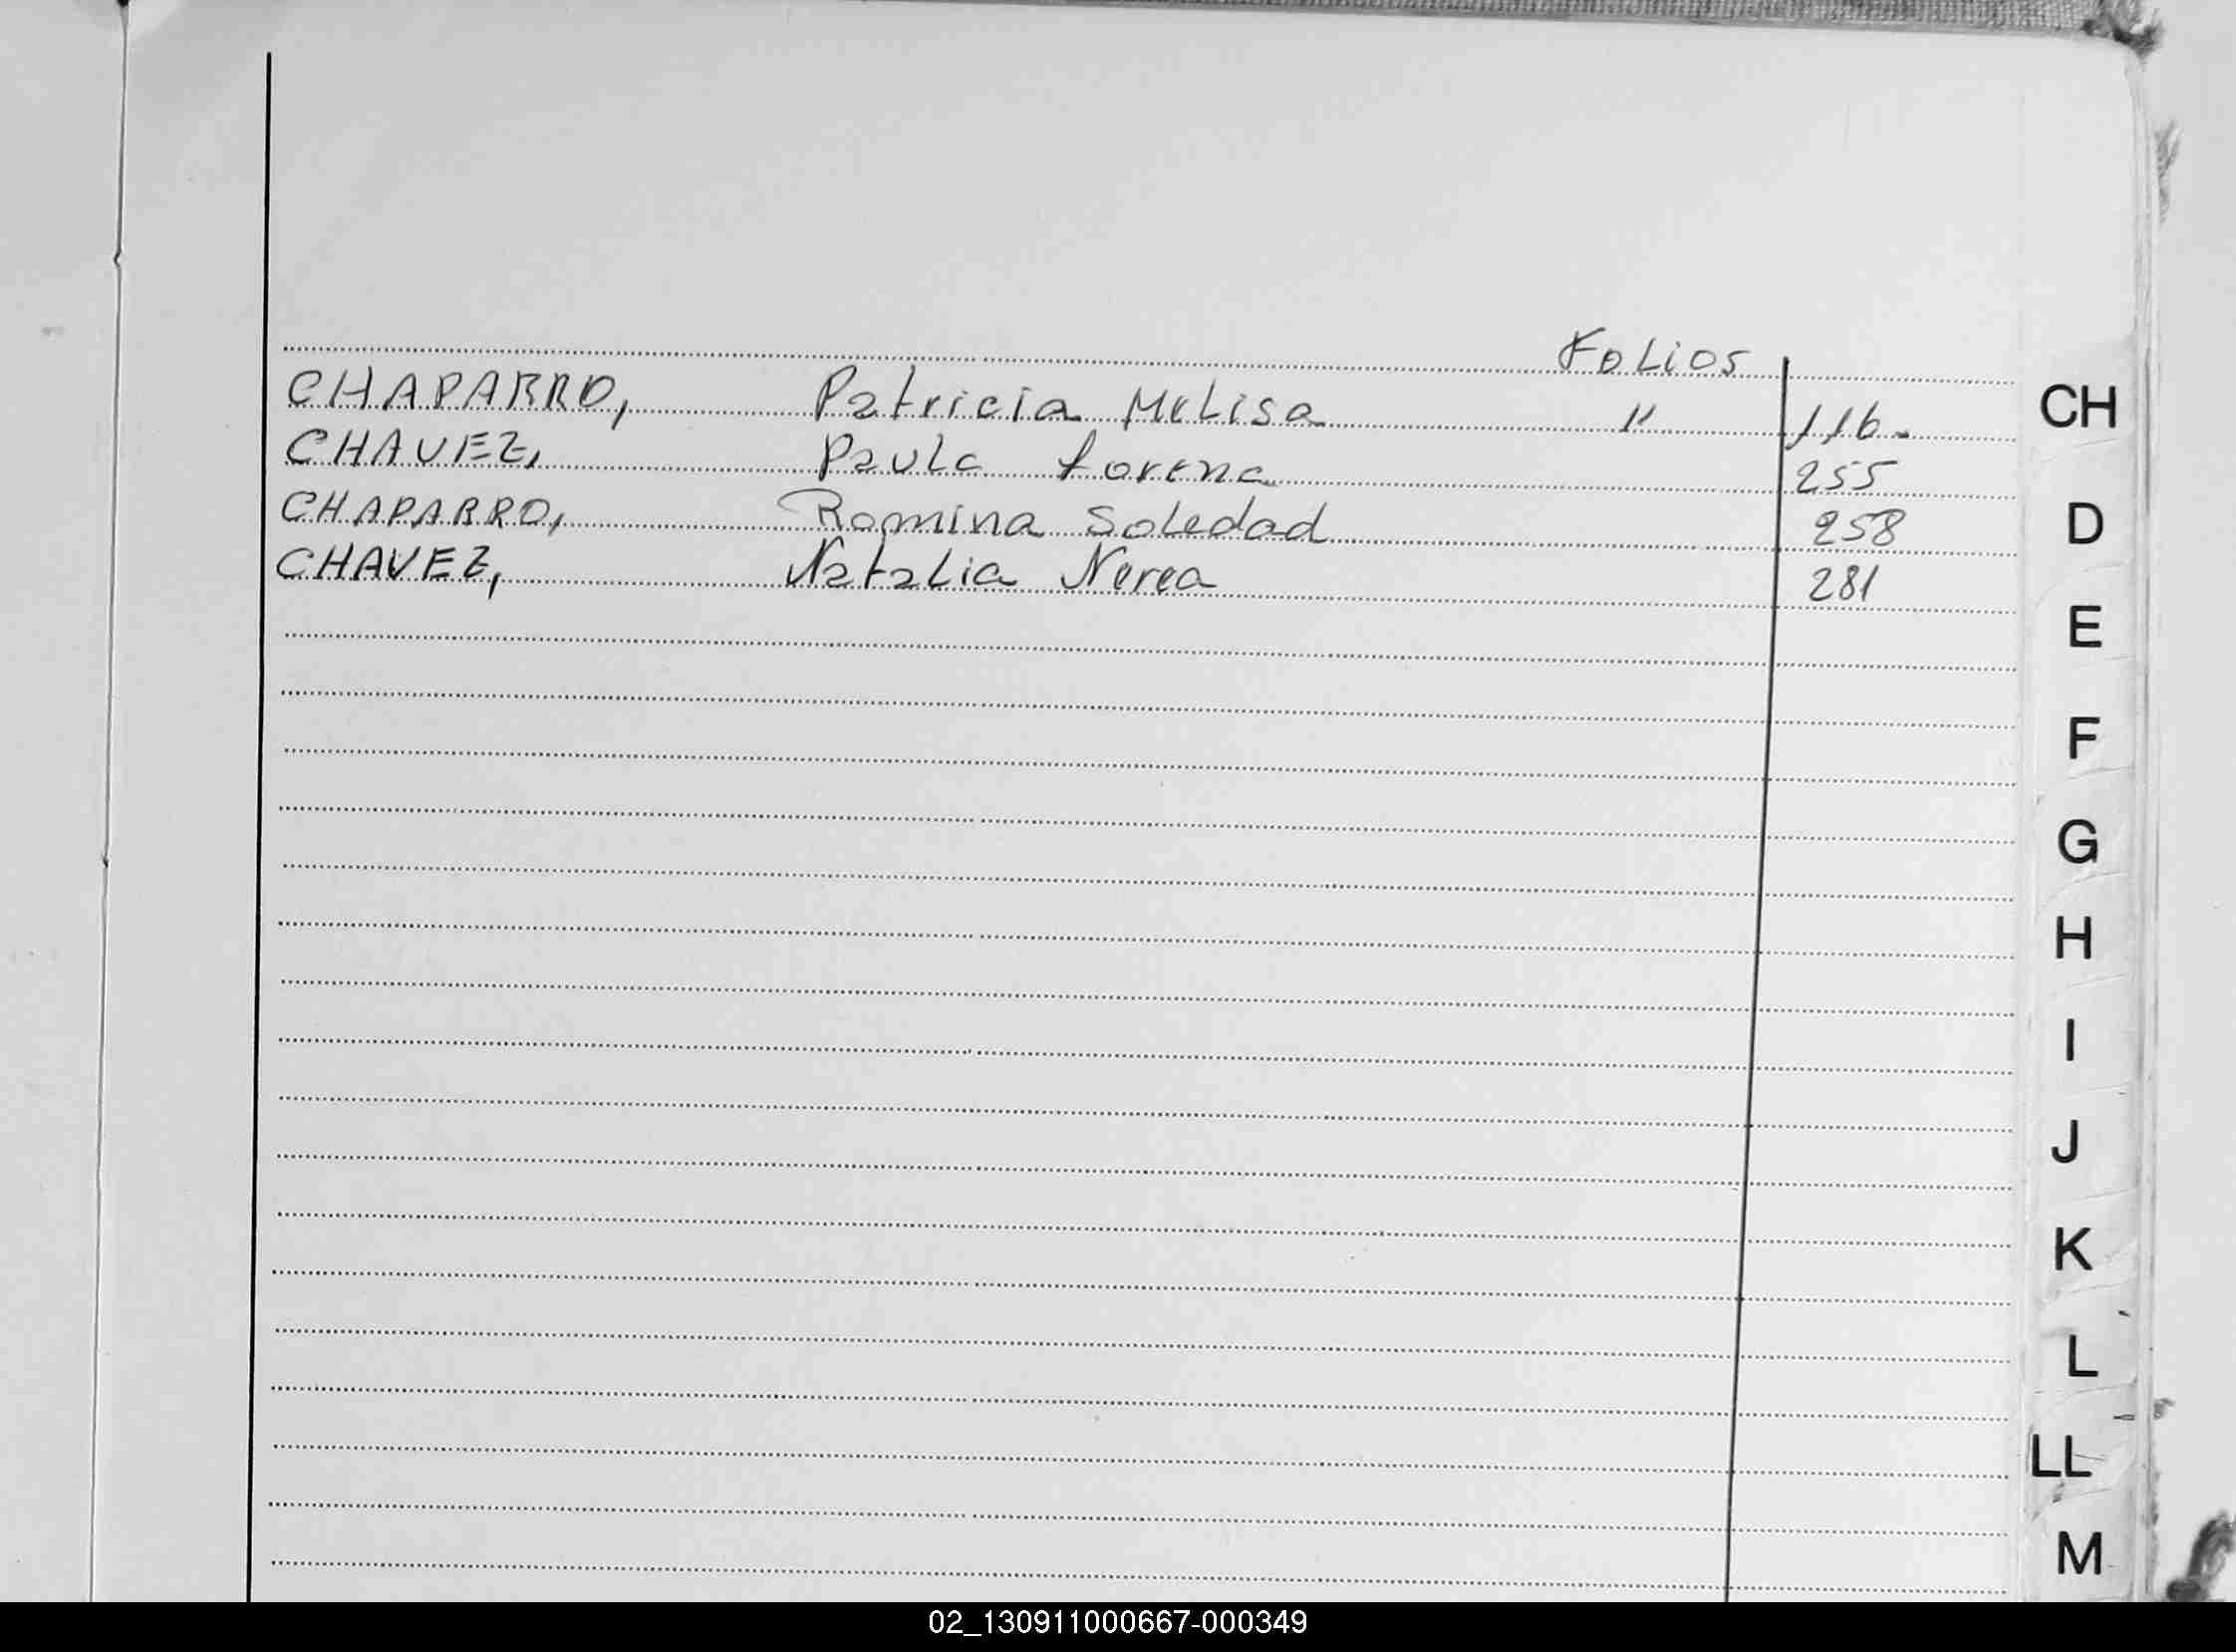 Folios
CHAPARRO, Patricia Melisa " 116.
CHAVEZ, Paula Lorena 255
CHAPARRO, Romina Soledad 258
CHAVEZ, Natalia Nerea 281
CH
D
E
F
G
H
I
J
K
L
LL
M
02_130911000667-000349